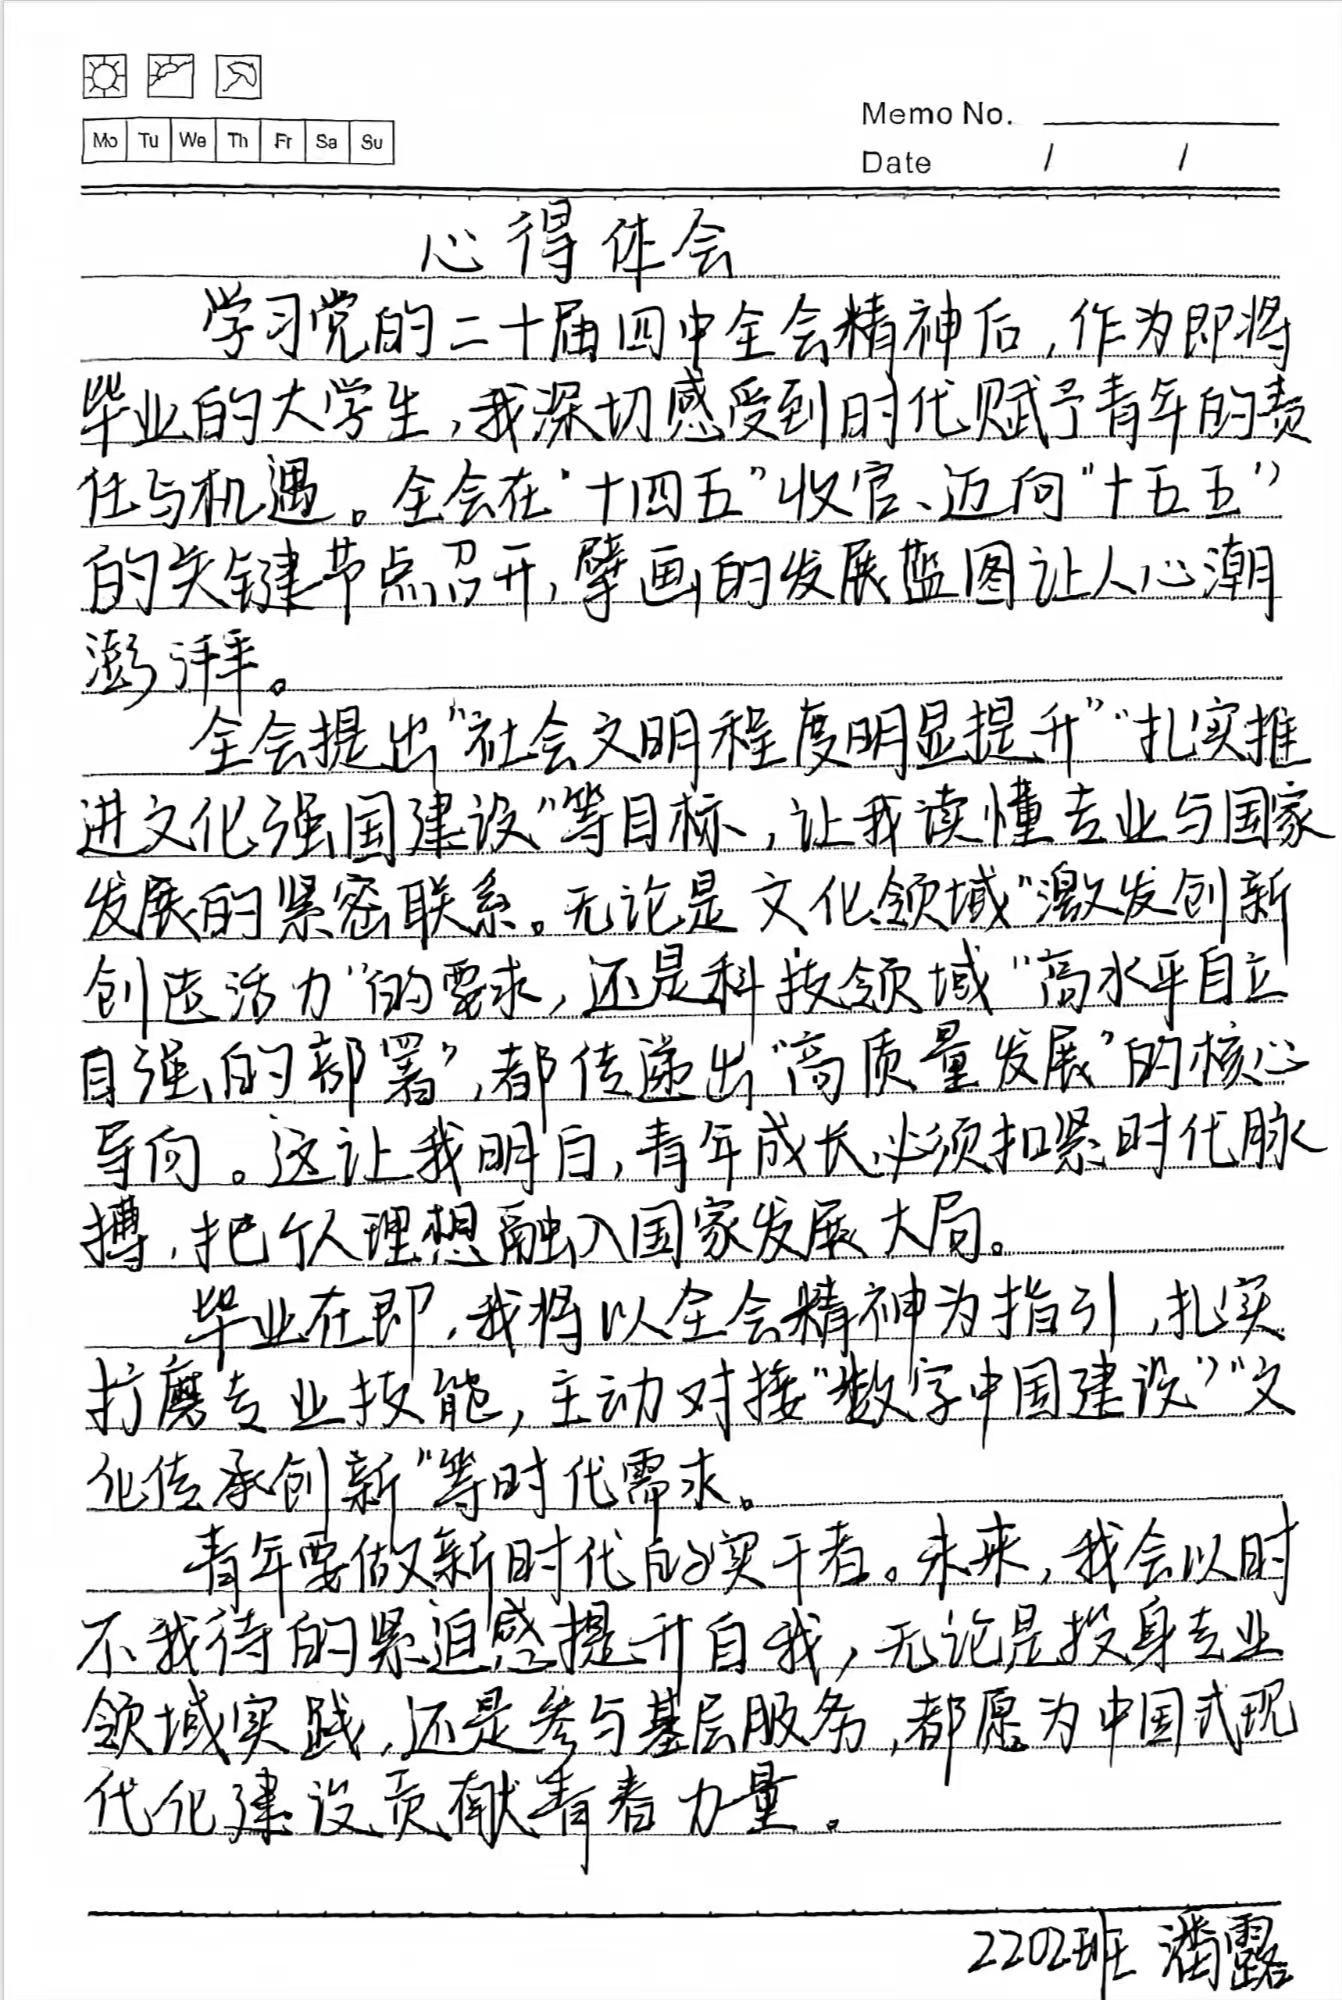 Mo Tu We Th Fr Sa Su
Memo No.
Date / /
心得体会
学习党的二十届四中全会精神后,作为即将
毕业的大学生,我深切感受到时代赋予青年的责
任与机遇。全会在“十四五”收官、迈向“十五五”
的关键节点召开,擘画的发展蓝图让人心潮
澎湃。
全会提出“社会文明程度明显提升”“扎实推
进文化强国建设”等目标,让我读懂专业与国家
发展的紧密联系。无论是文化领域“激发创新
创造活力”的要求,还是科技领域“高水平自立
自强的部署”,都传递出“高质量发展”的核心
导向。这让我明白,青年成长必须扣紧时代脉
搏,把个人理想融入国家发展大局。
毕业在即,我将以全会精神为指引,扎实
打磨专业技能,主动对接“数字中国建设”“文
化传承创新”等时代需求。
青年要做新时代的实干者。未来,我会以时
不我待的紧迫感提升自我,无论是投身专业
领域实践,还是参与基层服务,都愿为中国式现
代化建设贡献青春力量。
2202班 潘露